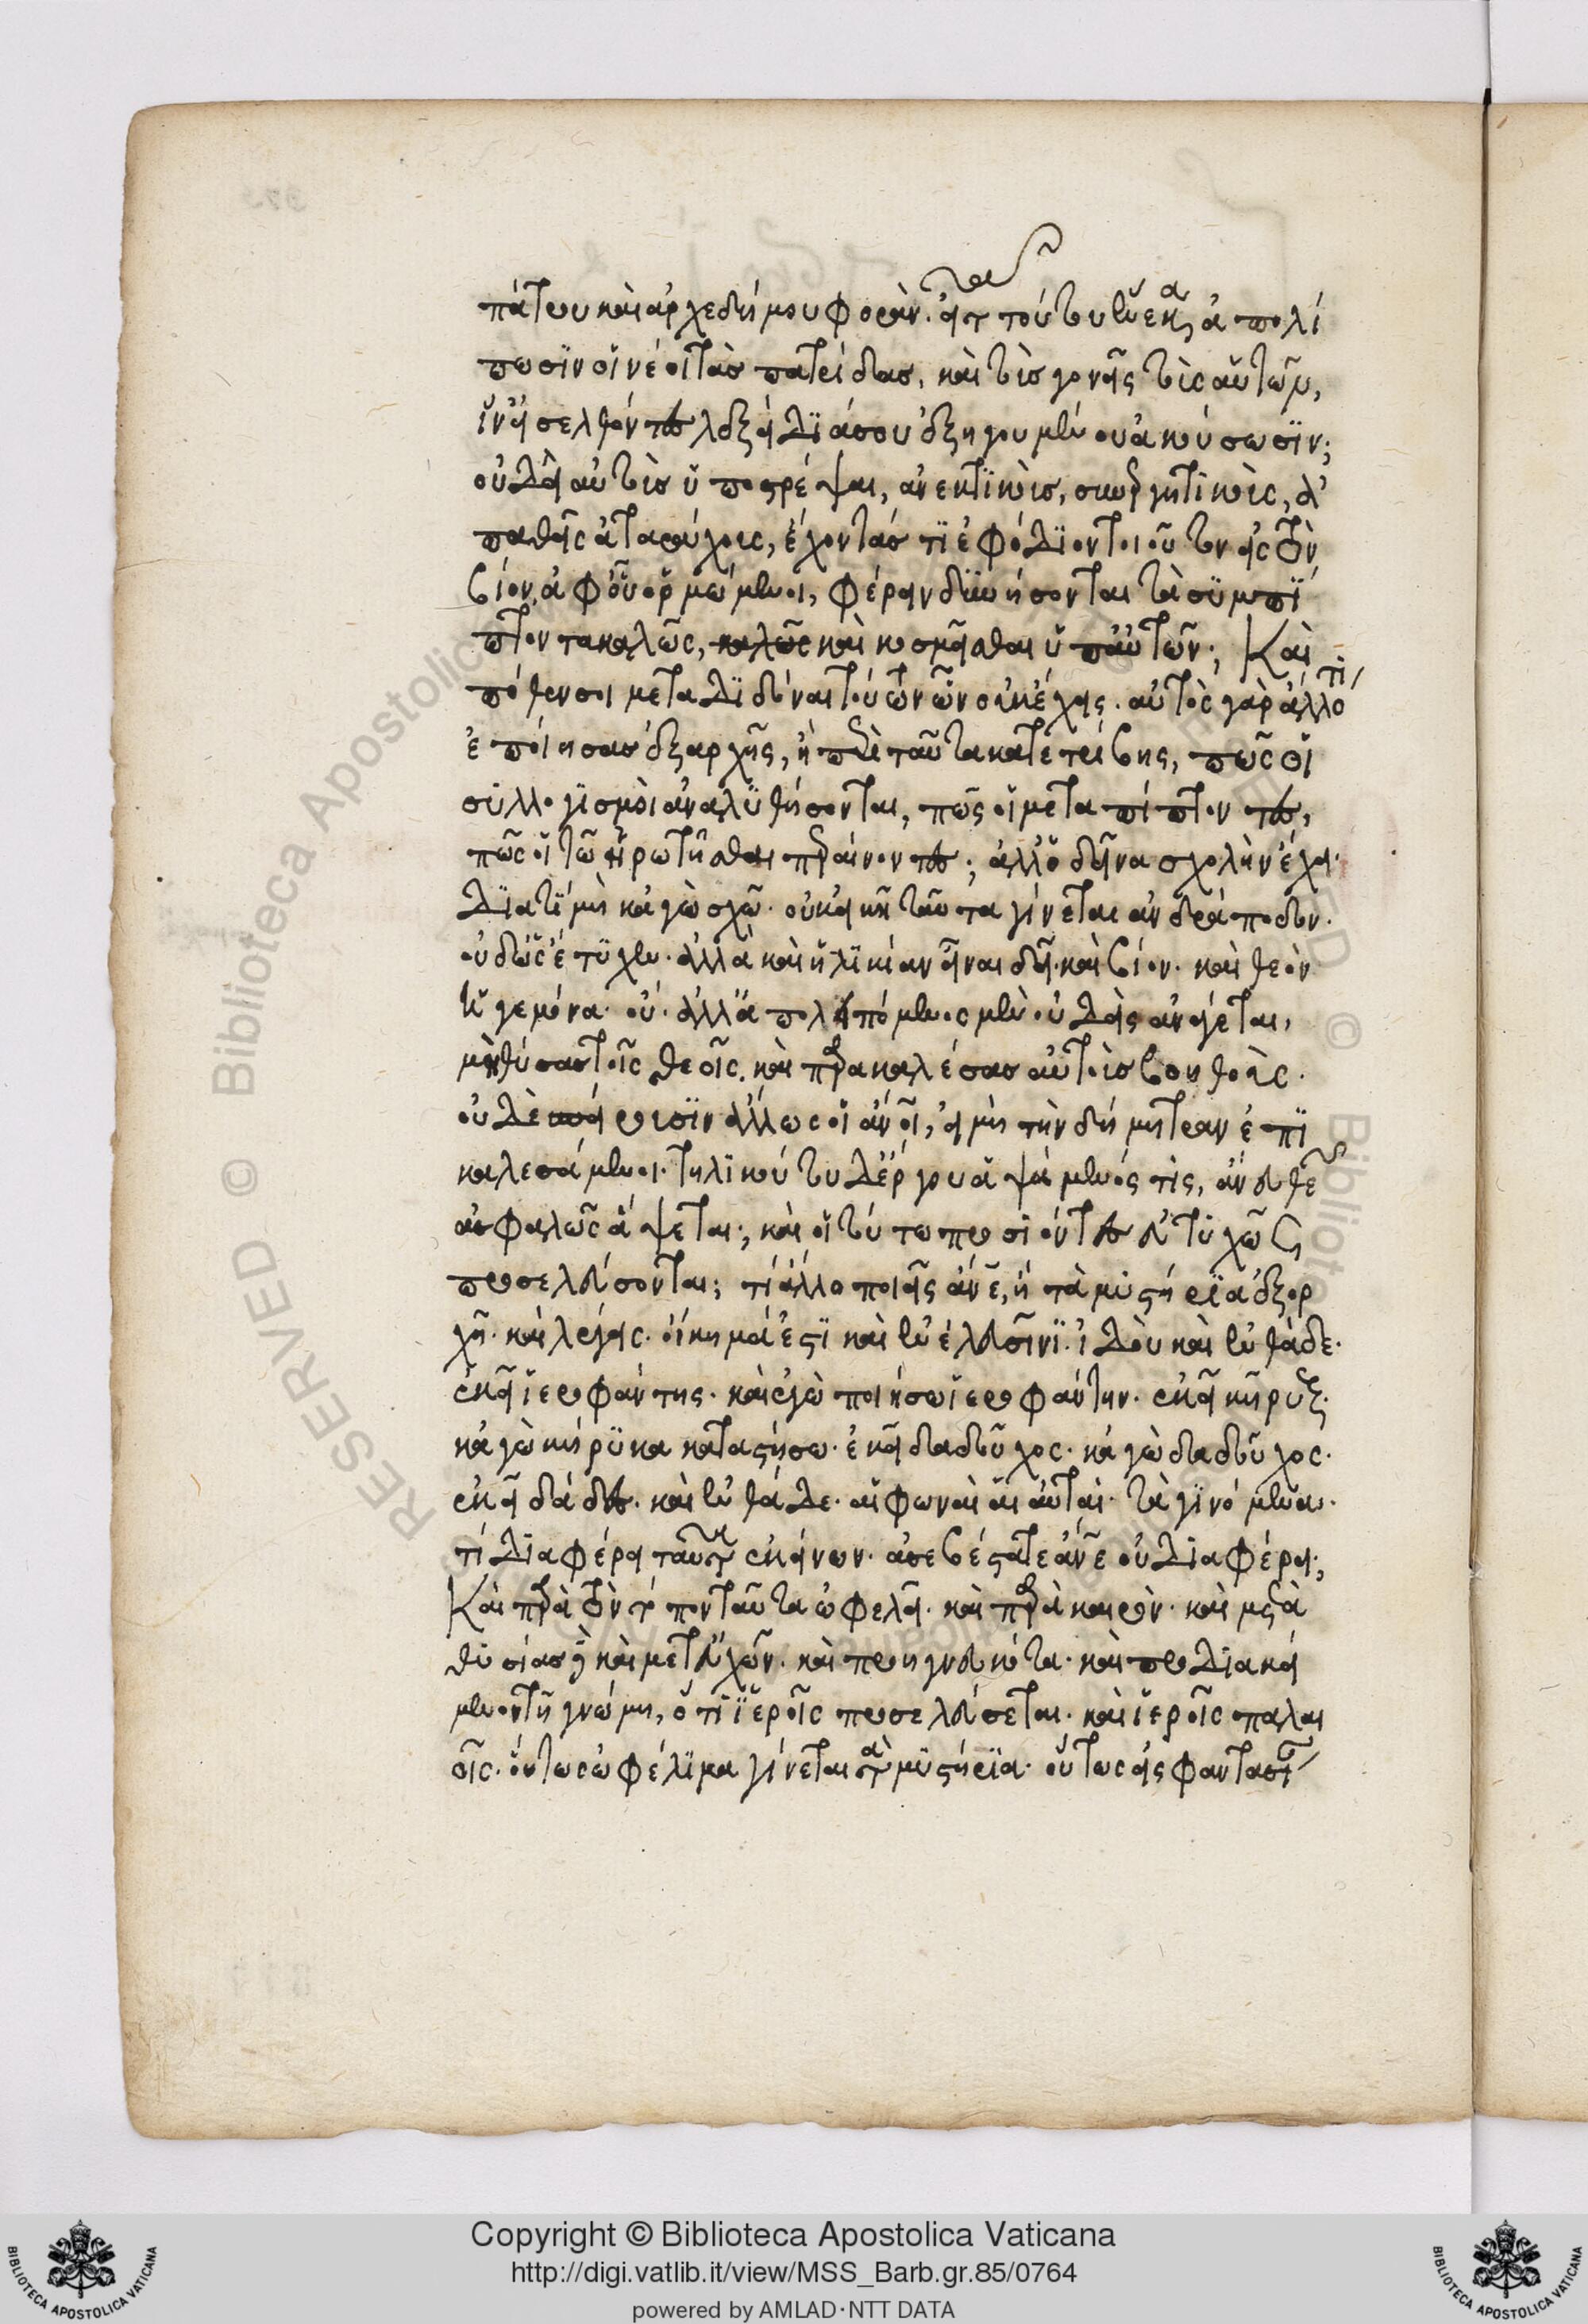 πάτρου καὶ ἀρχεδήμου φορὰν. εἶτα τούτου ἕνεκα ἀπολί
πωσϊν οἱ νέοι τὰς πατρίδας, καὶ τοὺς γονεῖς τοὺς αὑτῶν,
ἵν' ἐλθόντες λεξείδϊα σου ἐξηγουμένου ἀκούσωσϊν;
οὐ δεῖ αὐτοὺς ὑποστρέψαι, ἀνεκτϊκοὺς, συνεργητϊκοὺς, ἀ
παθεῖς ἀταράχους, ἔχοντάς τϊ ἐφόδϊον τοιοῦτον εἰς τὸν
βίον, ἀφ' οὗ ὁρμώμενοι, φέρειν δυνήσονται τὰ συμπί
πτοντα καλῶς, καλῶς καὶ κοσμεῖσθαι ὑπ' αὐτῶν; Καὶ
πόθεν σοι μεταδϊδόναι τούτων ὧν οὐκ ἔχεις. αὐτὸς γὰρ ἄλλο τι
ἐποίησας ἐξ ἀρχῆς, ἢ περὶ ταῦτα κατετρίβης, πῶς οἱ
συλλογϊσμοὶ ἀναλυθήσονται, πῶς οἱ μεταπίπτοντες,
πῶς οἱ τῶ ἠρωτῆσθαι περαίνοντες; ἀλλ' ὁ δεῖνα σχολὴν ἔχει.
δϊατί μὴ κἀγὼ σχῶ. οὐκ εἰκῆ ταῦτα γίνεται ἀνδράποδον.
οὐδ' ὡς ἔτυχεν. ἀλλὰ καὶ ἡλϊκίαν εἶναι δεῖ. καὶ βίον. καὶ θεὸν
ἡγεμόνα. οὔ. ἀλλ' ἀπὸ λιμένος μὲν οὐδεὶς ἀνάγεται,
μὴ θύσας τοῖς θεοῖς. καὶ παρακαλέσας αὐτοὺς βοηθοὺς.
οὐδὲ σπείρουσϊν ἄλλως οἱ ἄνοι, εἰ μὴ τὴν δήμητραν ἐπϊ
καλεσάμενοι. τηλϊκούτου δ' ἔργου ἁψάμενός τις, ἄνευ θεῶν
ἀσφαλῶς ἅψεται; καὶ οἱ τούτω προσϊόντες εὐτυχῶς
προσελεύσονται; τί ἄλλο ποιεῖς ἄνε, ἢ τὰ μυστήρϊα ἐξορ
χῆ. καὶ λέγεις. οἴκημά ἐστϊ καὶ ἐν ἐλευσῖνϊ. ἰδοὺ καὶ ἐνθάδε.
ἐκεῖ ἱεροφάντης. καὶ ἐγὼ ποιήσω ἱεροφάντην. ἐκεῖ κῆρυξ.
κἀγὼ κήρυκα καταστήσω. ἐκεῖ δαδοῦχος. κἀγὼ δαδοῦχος.
ἐκεῖ δάδες. καὶ ἐνθάδε. αἱ φωναὶ αἱ αὐταί. τὰ γϊνόμενα.
τί δϊαφέρει ταῦτα ἐκείνων. ἀσεβέστατε ἄνε οὐ δϊαφέρει;
Καὶ παρὰ τὸν τόπον ταῦτα ὠφελεῖ. καὶ παρὰ καιρὸν. καὶ μετὰ
θυσίας δὲ καὶ μετ' εὐχῶν. καὶ προηγνευκότα. καὶ προδϊακεί
μενον τῆ γνώμη, ὅτϊ ἱεροῖς προσελεύσεται. καὶ ἱεροῖς παλαι
οῖς. οὕτως ὠφέλϊμα γίνεται τὰ μυστήρϊα. οὕτως εἰς φαντασί